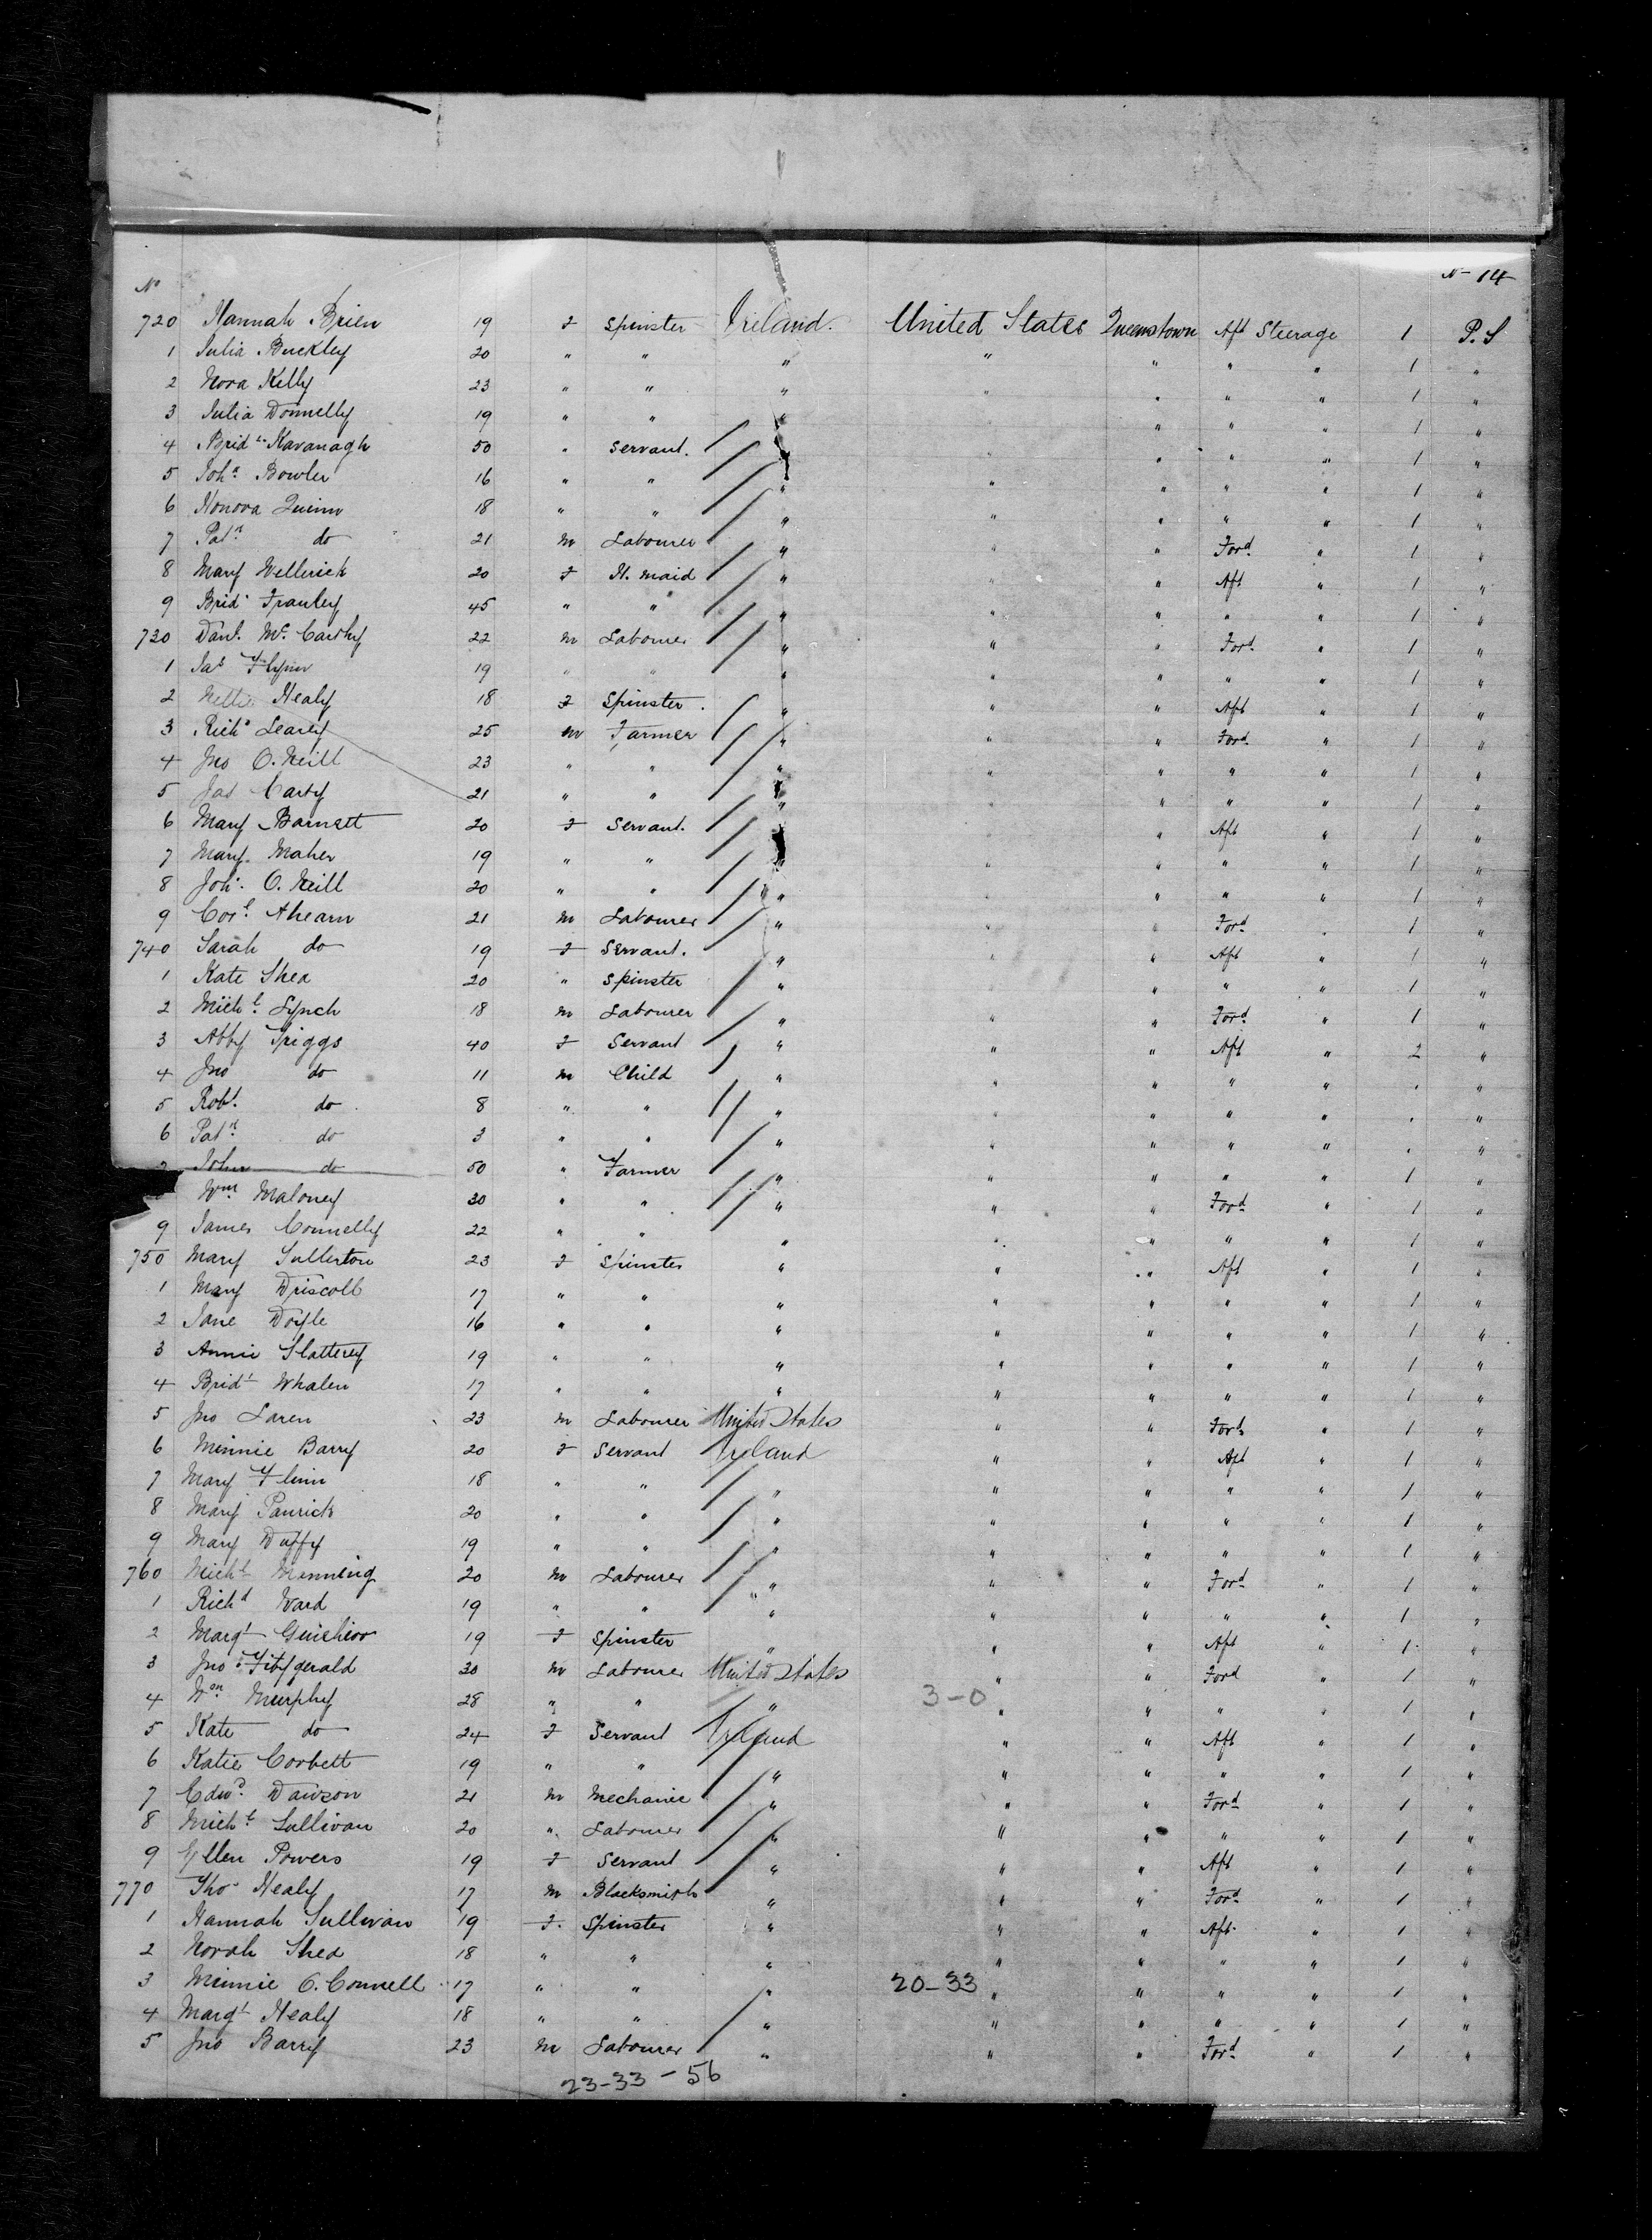 No N- 14
720 Hannah Brien 19 F Spinster Ireland. United States Queenstown Aft Steerage 1 P. S
1 Julia Buckley 20 " " " " " " " 1 "
2 Nora Kelly 23 " " " " " " " 1 "
3 Julia Donnelly 19 " " " " " " 1 "
4 Brid. Kavanagh 50 " Servant. " " " " " 1 "
5 Joha Bowler 16 " " " " " " " 1 "
6 Honora Quinn 18 " " " " " " " 1 "
7 Patk do 21 m Labourer " " " Ford " 1 "
8 Mary Wellerick 20 F H. maid " " " Aft " 1 "
9 Brid. Frauley 45 " " " " " " " 1 "
730 Danl. Mc. Carthy 22 m Labourer " " " Ford " 1 "
1 Jas Flynn 19 " " " " " " " 1 "
2 Nellie Healy 18 F Spinster. " " " Aft " 1 "
3 Richd Leary 25 m Farmer " " " Ford " 1 "
4 Jno O. Neill 23 " " " " " " " 1 "
5 Jas Carty 21 " " " " " " " 1 "
6 Mary Barnett 20 F Servant. " " " Aft " 1 "
7 Mary. Maher 19 " " " " " " " 1 "
8 Joha. O. Neill 20 " " " " " " " 1 "
9 Corl. Ahearn 21 m Labourer " " " Ford " 1 "
740 Sarah do 19 F Servant. " " " Aft " 1 "
1 Kate Shea 20 " Spinster " " " " " 1 "
2 Michl Lynch 18 m Labourer " " " Ford " 1 "
3 Abby Triggs 40 F Servant " " " Aft " 2 "
4 Jno do 11 m Child " " " " " " "
5 Robt. do 8 " " " " " " " " "
6 Patk do 3 " " " " " " " " "
John do 50 " Farmer " " " " " 1 "
Wm. Maloney 30 " " " " " Ford " 1 "
9 James Connelly 22 " " " " " " " 1 "
750 Mary Sullerton 23 F Spinster " " " Aft " 1 "
1 Mary Driscoll 17 " " " " " " " 1 "
2 Jane Doyle 16 " " " " " " " 1 "
3 Annie Slattery 19 " " " " " " " 1 "
4 Bridt Whalen 17 " " " " " " " 1 "
5 Jno Laren 23 m Labourer United States " " Ford " 1 "
6 Minnie Barry 20 F Servant Ireland " " Aft " 1 "
7 Mary Flinn 18 " " " " " " " 1 "
8 Mary Panrick 20 " " " " " " " 1 "
9 Mary Duffy 19 " " " " " " " 1 "
760 Michl Manning 20 m Labourer " " " Ford " 1 "
1 Richd Ward 19 " " " " " " " 1 "
2 Margt 19 F Spinster " " " Aft " 1 "
3 Jno Fitzgerald 30 m Labourer United States " " Ford " 1 "
4 Wm Murphy 28 " " " 3-0 " " " " 1 "
5 Kate do 24 F Servant Ireland " " Aft " 1 "
6 Katie Corbett 19 " " " " " " " 1 "
7 Edwd. Dawson 21 m Mechanic " " " Ford " 1 "
8 Michl Sullivan 20 " Labourer " " " " " 1 "
9 Ellen Powers 19 F Servant " " " Aft " 1 "
770 Thos Healy 17 m Blacksmith " " " Ford " 1 "
1 Hannah Sullivan 19 F. Spinster " " " Aft " 1 "
2 Norah Shea 18 " " " " " " " 1 "
3 Minnie O. Connell 17 " " " 20-33 " " " " 1 "
4 Margt Healy 18 " " " " " " " 1 "
5 Jno Barry 23 m Labourer " " " Ford " 1 "
23-33-56